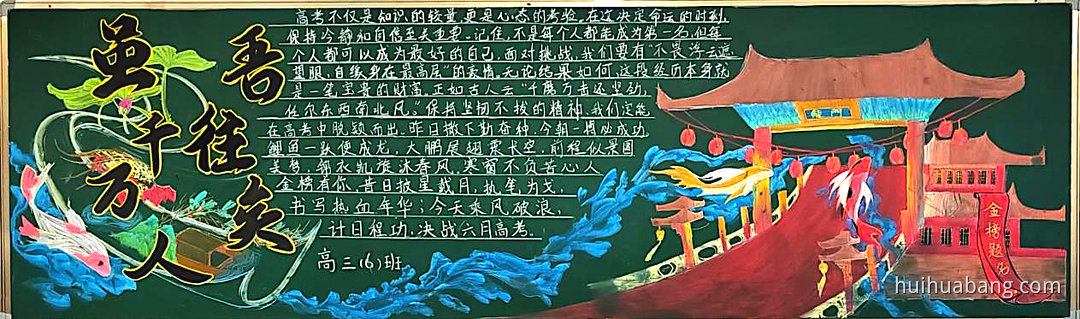 吾往矣
虽千万人
高考不仅是知识的较量,更是心态的考验。在这决定命运的时刻,
保持冷静和自信至关重要。记住,不是每个人都能成为第一名,但每
个人都可以成为最好的自己。面对挑战,我们要有“不畏浮云遮
望眼,自缘身在最高层”的豪情。无论结果如何,这段经历本身就
是一笔宝贵的财富。正如古人云“千磨万击还坚劲,
任尔东西南北风。”保持坚韧不拔的精神,我们定能
在高考中脱颖而出。昨日撒下勤奋种,今朝一搏必成功,
鲤鱼一跃便成龙,大鹏展翅震长空。前程似景图
美梦,锦衣凯旋沐春风,寒窗不负苦心人
金榜有你,昔日披星戴月,执笔为戈,
书写热血年华;今天乘风破浪,
计日程功,决战六月高考。
高三(6)班
龍門
金榜题名
huihuabang.com